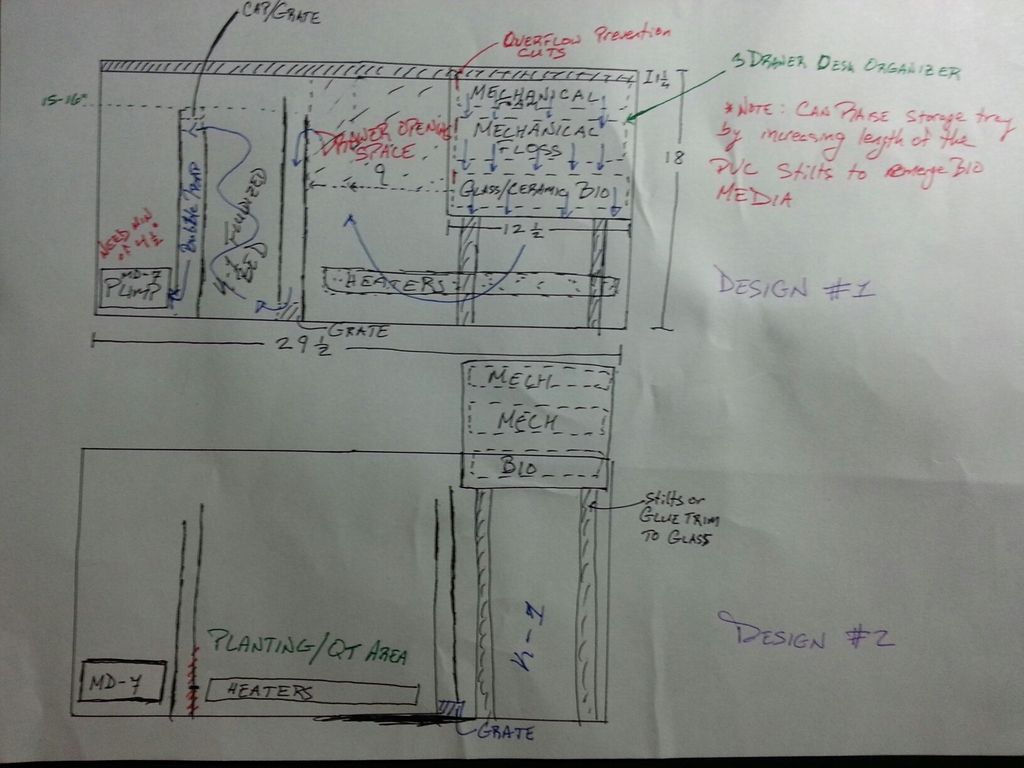 CAP/GRATE
OVERFLOW Prevention
CUTS
3 DRAWER DESK ORGANIZER
15-16"
1 1/4
MECHANICAL
MECHANICAL
FLOSS
GLASS/CERAMIC BIO
DRAWER OPENING
SPACE
9
18
12 1/2
*NOTE: CAN RAISE Storage tray
by increasing length of the
PVC Stilts to remerge BIO
MEDIA
NEED MIN
of 4 1/2"
MD-7
PUMP
Bubble TRAP
FLUIDIZED
BED
HEATERS
GRATE
29 1/2
DESIGN #1
MECH
MECH
BIO
Stilts or
GLUE TRIM
TO GLASS
K-1
PLANTING/QT AREA
MD-7
HEATERS
GRATE
DESIGN #2